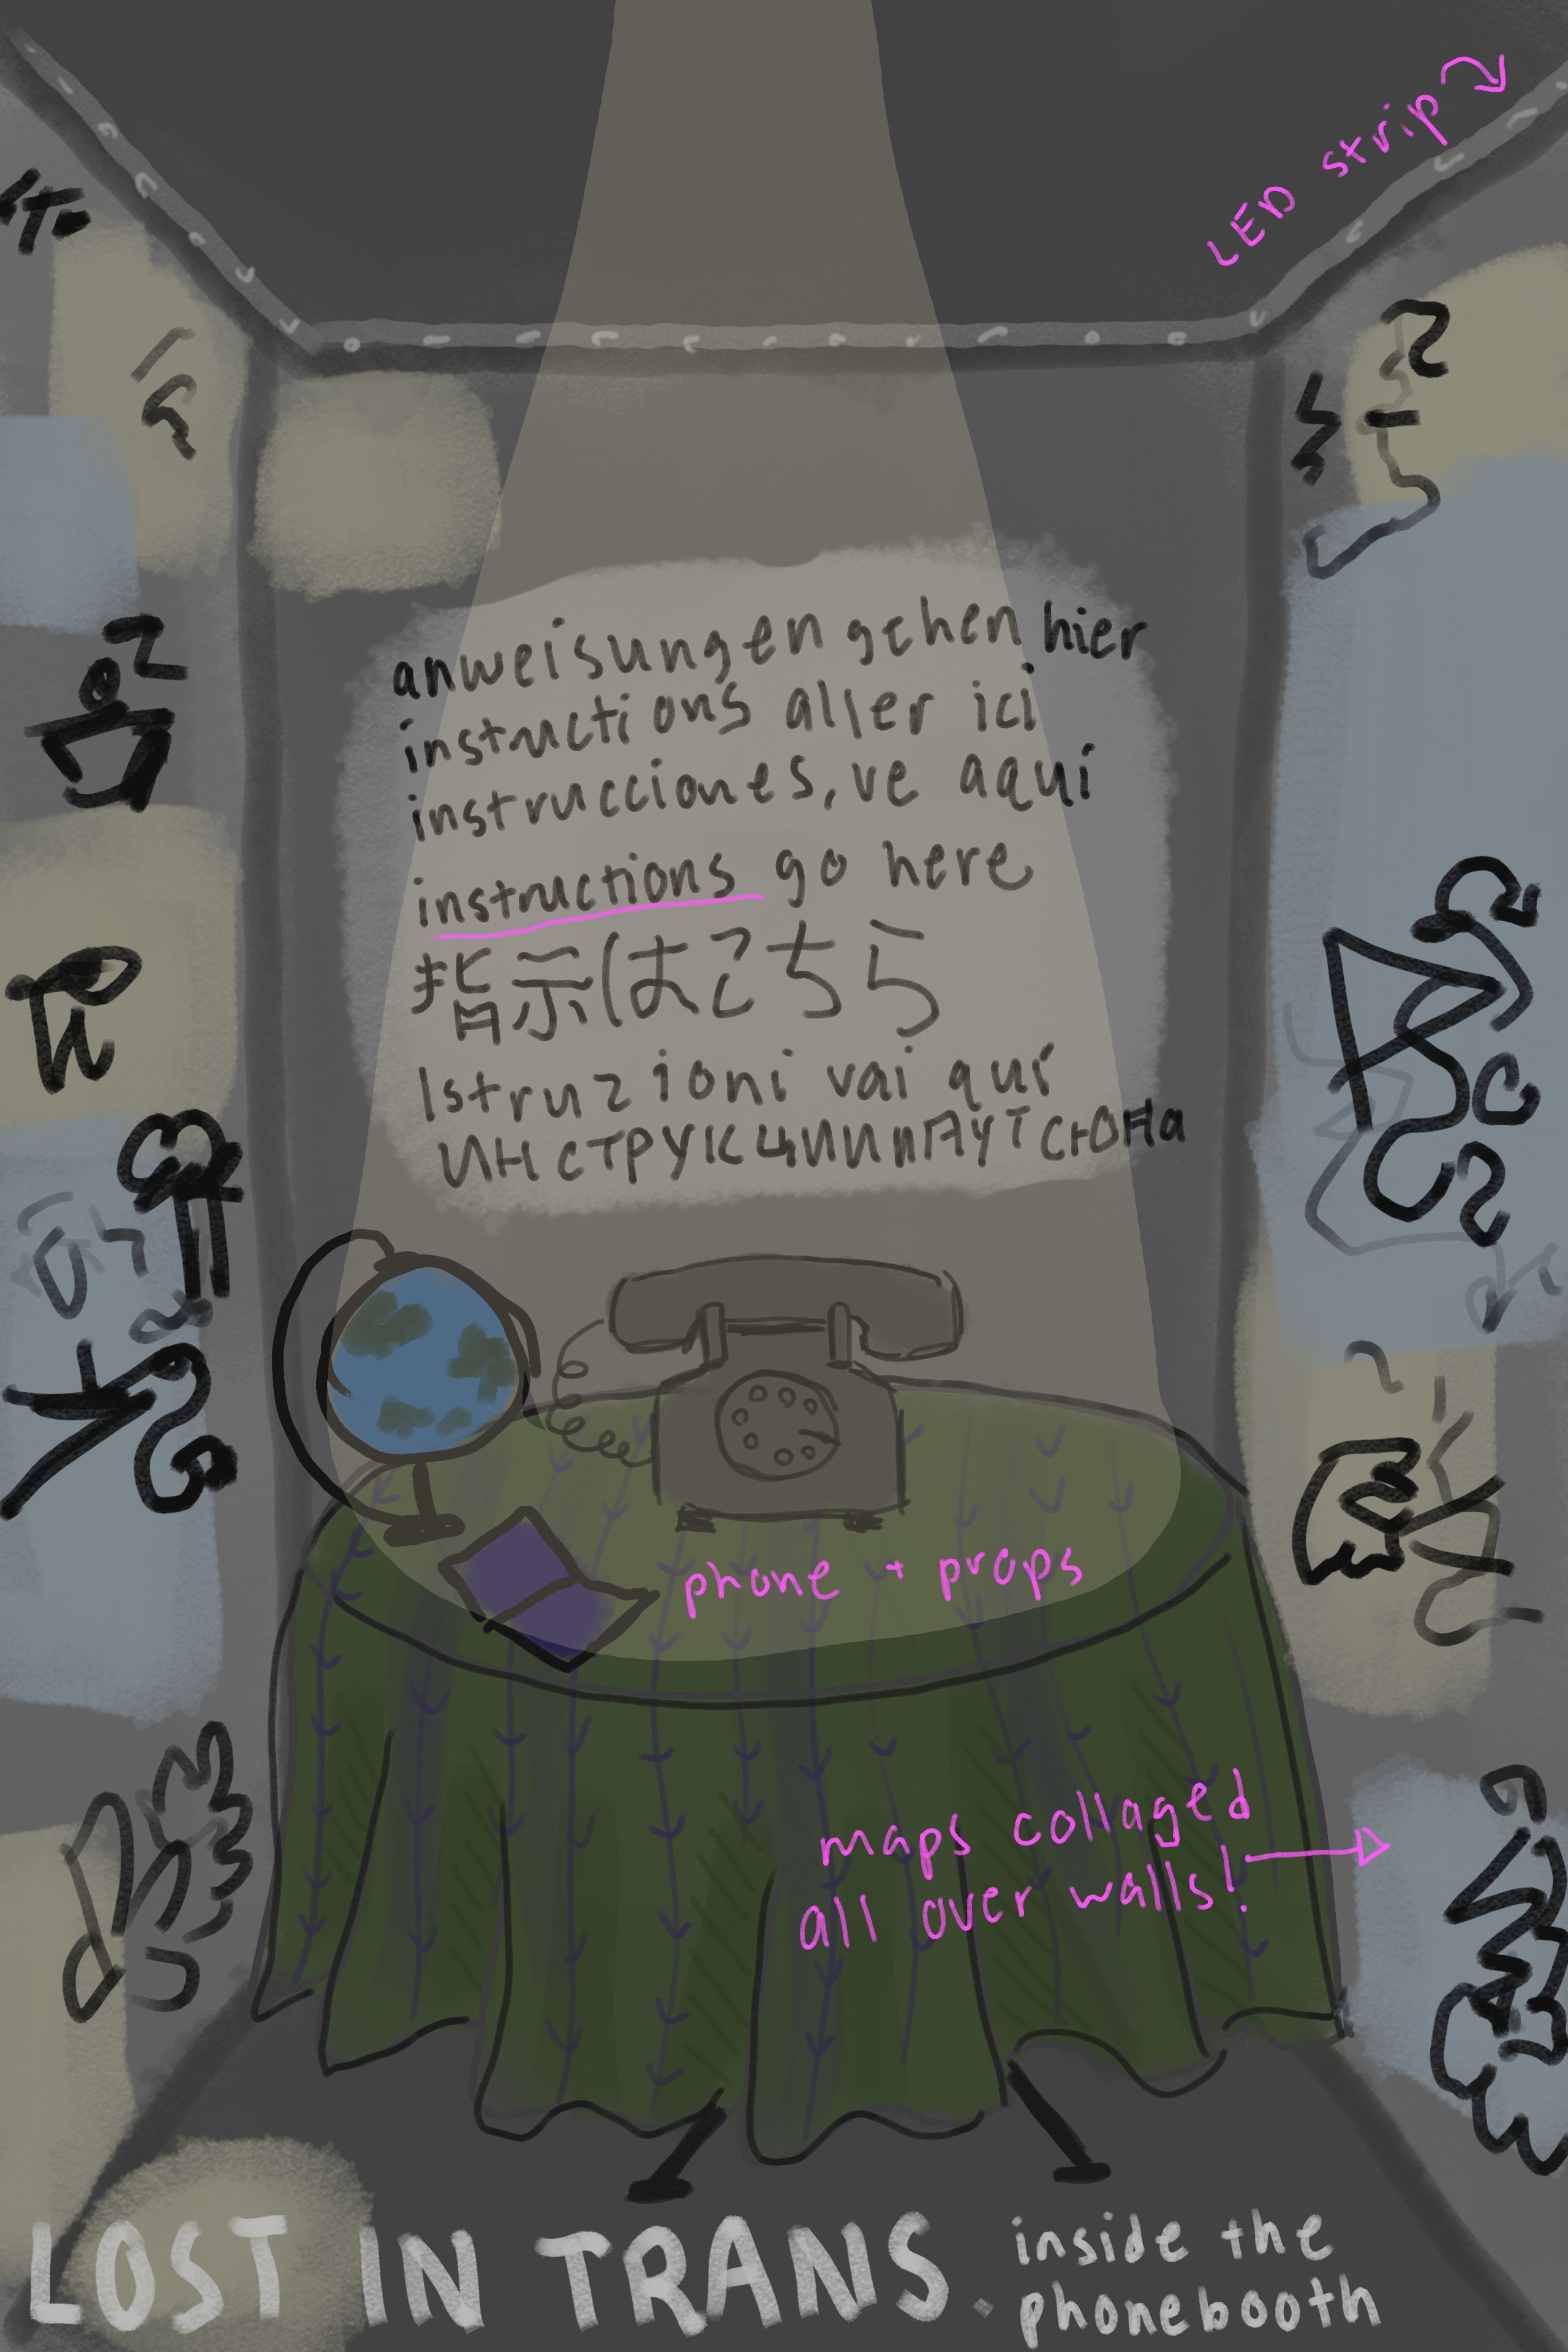 LED strip
anweisungen gehen hier
instructions aller ici
instrucciones, ve aquí
instructions go here
指示はこちら
Istruzioni vai qui
phone + props
maps collaged
all over walls!
LOST IN TRANS.
inside the
phonebooth